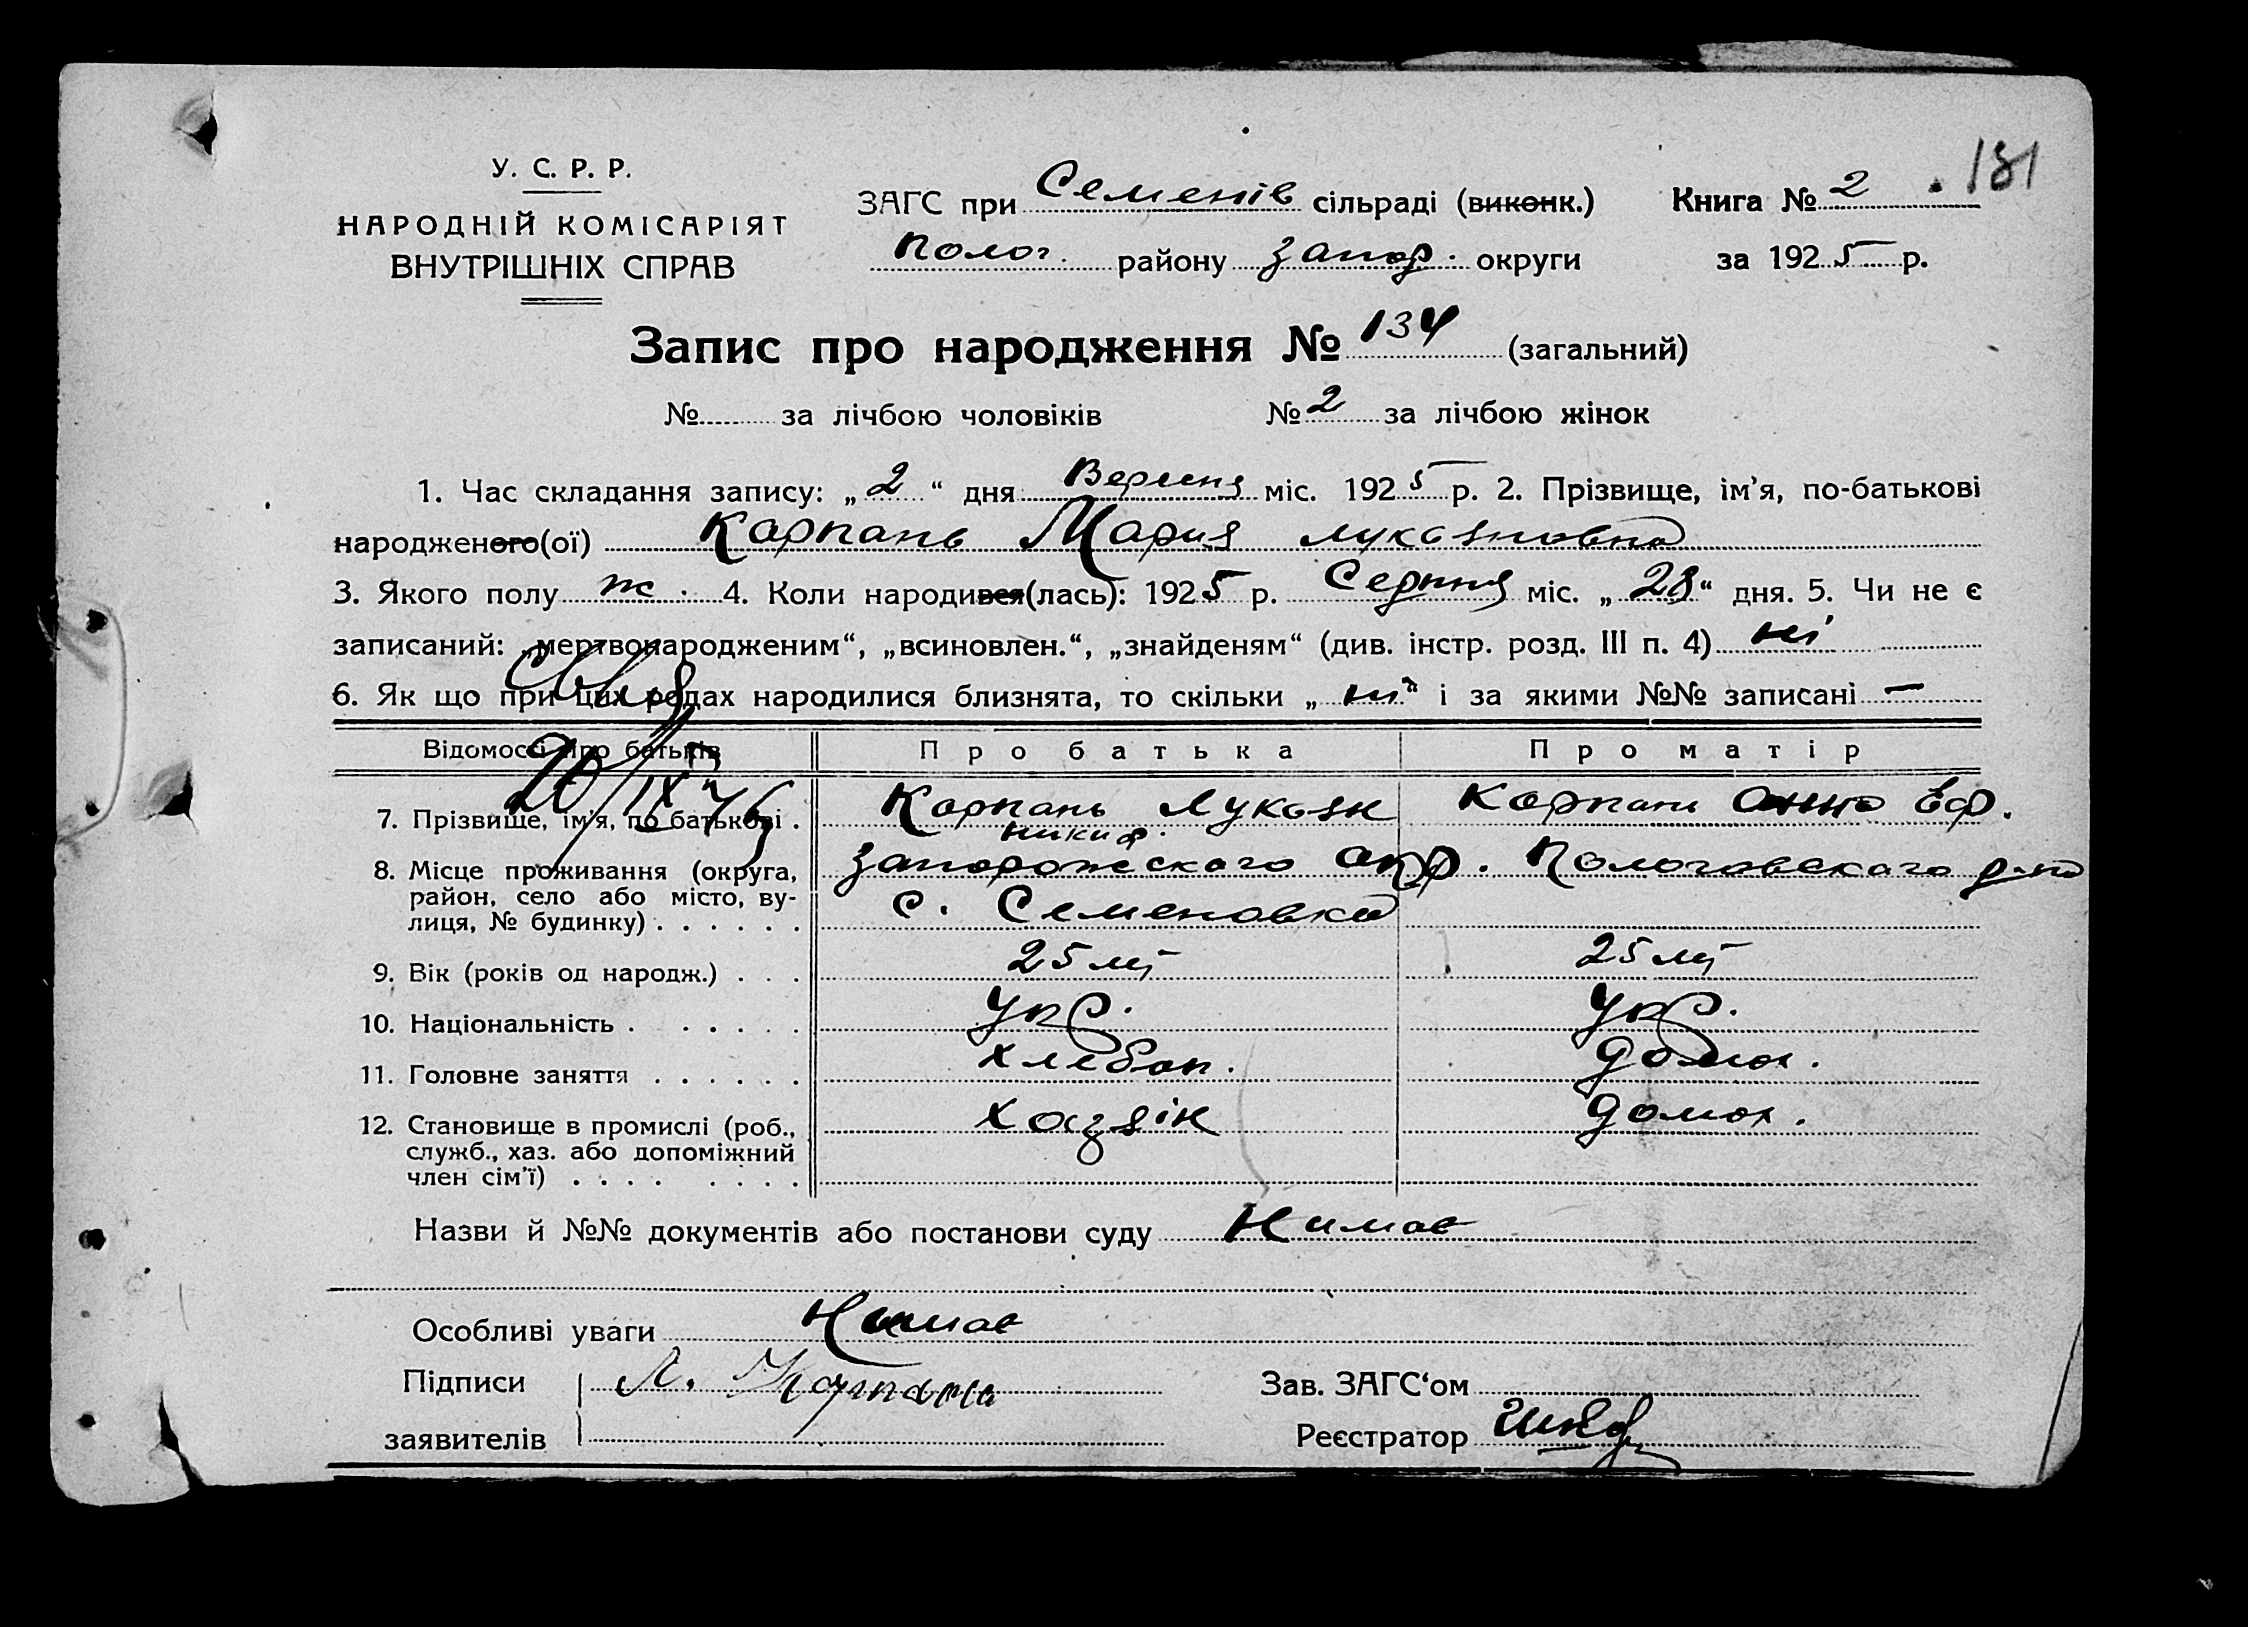 181
У. С. Р. Р.
НАРОДНІЙ КОМІСАРІЯТ
ВНУТРІШНІХ СПРАВ
ЗАГС при Семенів сільраді (виконк.)
Полог. району Запор. округи
Книга № 2
за 1925 р.
Запис про народження № 134 (загальний)
№ за лічбою чоловіків № 2 за лічбою жінок
1. Час складання запису: „2“ дня Вересня міс. 1925 р. 2. Прізвище, ім’я, по-батькові
народженого(ої) Карпань Мария Лукьяновна
3. Якого полу ж. 4. Коли народився(лась): 1925 р. Серпня міс. „28“ дня. 5. Чи не є
записаний: „мертвонародженим“, „всиновлен.“, „знайденям“ (див. інстр. розд. III п. 4) ні
6. Як що при цих родах народилися близнята, то скільки „ні“ і за якими №№ записані —
Відомості про батьків Про батька Про матір
7. Прізвище, ім’я, по батькові . Карпань Лукьян Карпань Анна Еф.
Никиф.
8. Місце проживання (округа, Запорожскаго окр. Пологовскаго р-на
район, село або місто, ву- с. Семеновка
лиця, № будинку) . . . . . .
9. Вік (років од народж.) . . . 25 літ 25 літ
10. Національність . . . . . . Укр. Укр.
11. Головне заняття . . . . . . хлебоп. домох.
12. Становище в промислі (роб., хазяїн домох.
служб., хаз. або допоміжний
член сім’ї) . . . . . . . .
Назви й №№ документів або постанови суду Нимає
Особливі уваги Нимає
Підписи Л. Карпань Зав. ЗАГС‘ом
заявителів Реєстратор